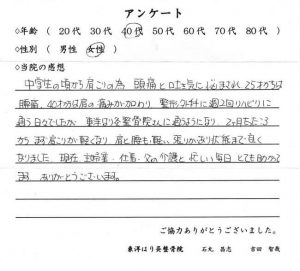 アンケート
◇年齢（ 20代 30代 40代 50代 60代 70代 80代 ）
◇性別（ 男性 女性 ）
◇当院の感想
中学生の頃から肩こりの為、頭痛と吐き気に悩まされ、25才からは
腰痛、40才からは肩の痛みが加わり、整形外科に週2回リハビリに
通う日々でしたが、東洋はり灸整骨院さんに通うようになり、2ヶ月もたころ
から、肩こりが軽くなり、肩と腰も軽い張りがあり状態まで良く
なりました。現在、主婦業・仕事・父の介護と忙しい毎日、とても助かって
ます。ありがとうございます。
ご協力ありがとうございました。
東洋はり灸整骨院 石丸 昌志 吉田 智哉